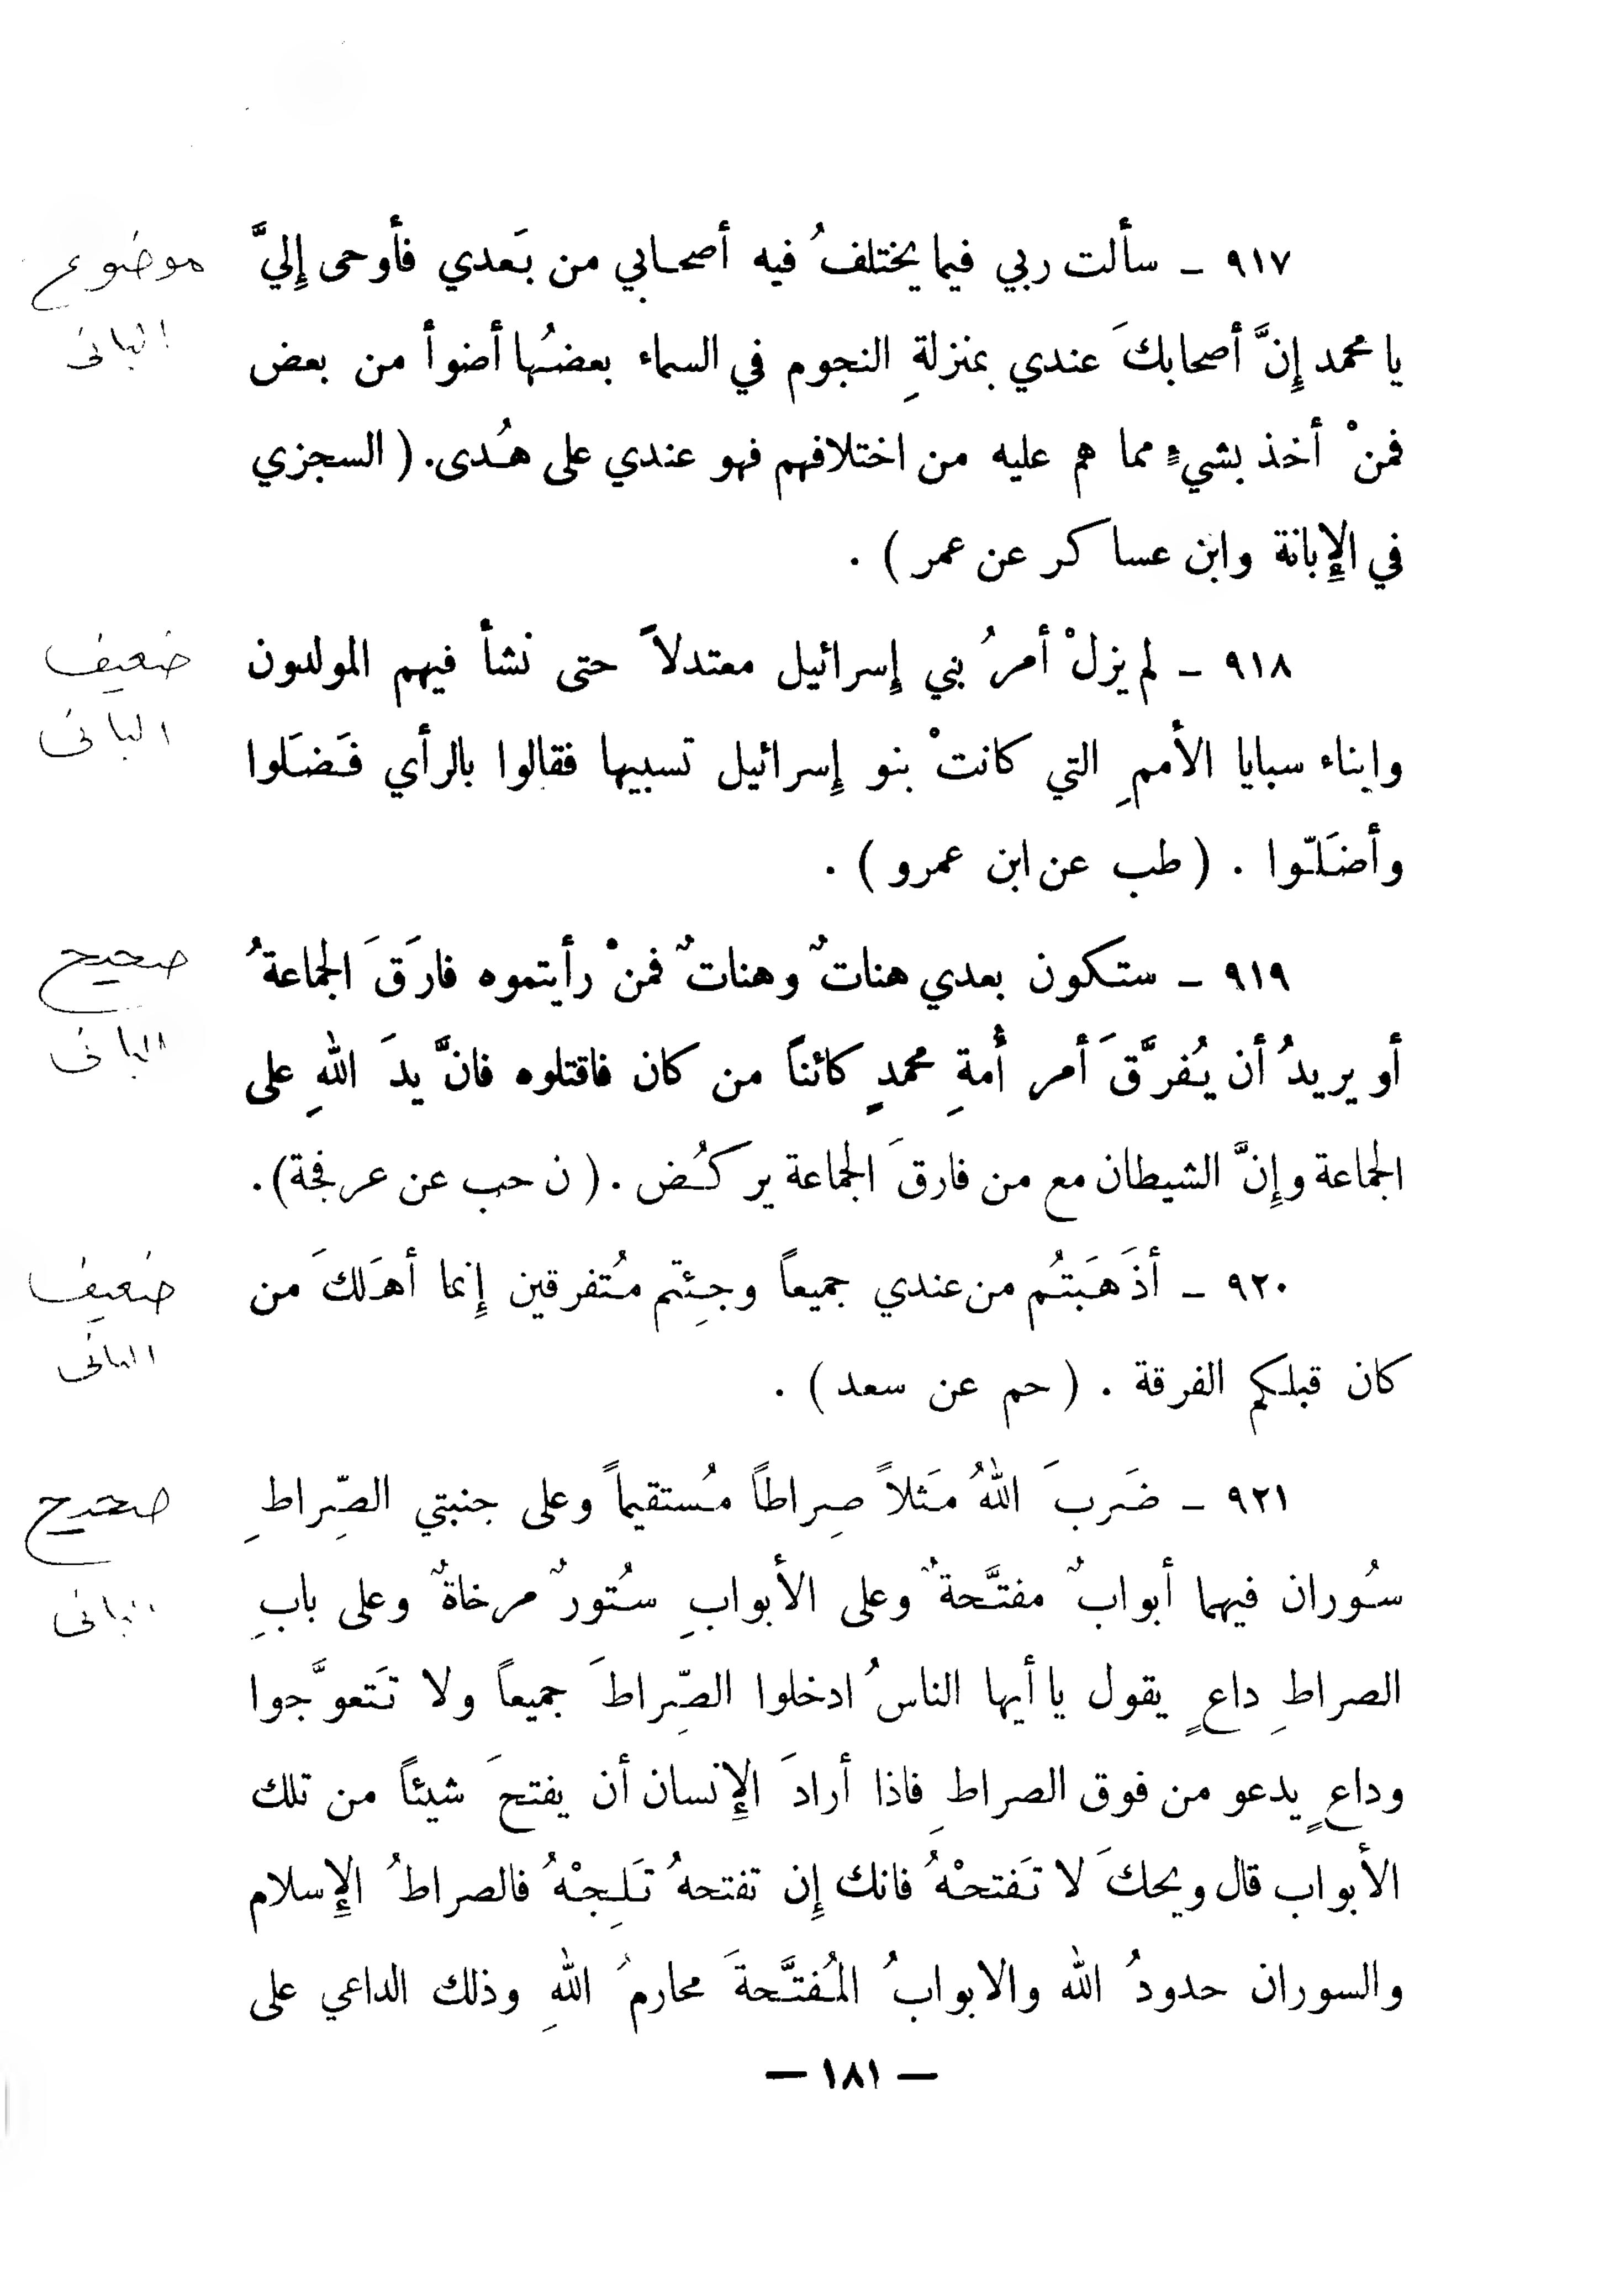 موضوع
البانى
٩١٧ ـ سألت ربي فيما يختلفُ فيه أصحابي من بَعدي فأوحى إِليَّ
يا محمد إِنَّ أصحابكَ عندي بمنزلةِ النجوم في السماء بعضُها أضوأ من بعض
فمنْ أخذ بشيءٍ مما هم عليه من اختلافهم فهو عندي على هُدى. ( السجزي
في الإِبانة وابن عساكر عن عمر ) .
ضعيف
البانى
٩١٨ ـ لم يزلْ أمرُ بني إِسرائيل معتدلاً حتى نشأ فيهم المولدون
وابناء سبايا الأممِ التي كانتْ بنو إِسرائيل تسبيها فقالوا بالرأي فَضَلوا
وأضَلّوا . ( طب عن ابن عمرو ) .
صحيح
البانى
٩١٩ ـ ستكون بعدي هناتٌ وهناتٌ فمنْ رأيتموه فارَقَ الجماعةُ
أو يريدُ أن يُفرَّقَ أمر أُمةِ محمدٍ كائناً من كان فاقتلوه فانَّ يدَ اللهِ على
الجماعة وإِنَّ الشيطان مع من فارقَ الجماعة يركُض . ( ن حب عن عرفجة) .
ضعيف
البانى
٩٢٠ ـ أذَهَبتُم من عندي جميعاً وجِئتم مُتفرقين إِنما أهَلكَ من
كان قبلكم الفرقة . ( حم عن سعد ) .
صحيح
البانى
٩٢١ ـ ضَربَ اللهُ مَثلاً صِراطاً مُستقيماً وعلى جنبتي الصِّراطِ
سُوران فيهما أبوابٌ مفتَّحةٌ وعلى الأبوابِ ستُورٌ مرخاةٌ وعلى بابِ
الصراطِ داعٍ يقول يا أيها الناسُ ادخلوا الصِّراطَ جميعاً ولا تَتعوَّجوا
وداعٍ يدعو من فوق الصراطِ فاذا أرادَ الإِنسان أن يفتحَ شيئاً من تلك
الأبواب قال ويحكَ لا تَفتحْهُ فانك إِن تفتحهُ تَلِجْهُ فالصراطُ الإِسلام
والسوران حدودُ الله والابوابُ المُفتَّحةَ محارمُ اللهِ وذلك الداعي على
— ١٨١ —